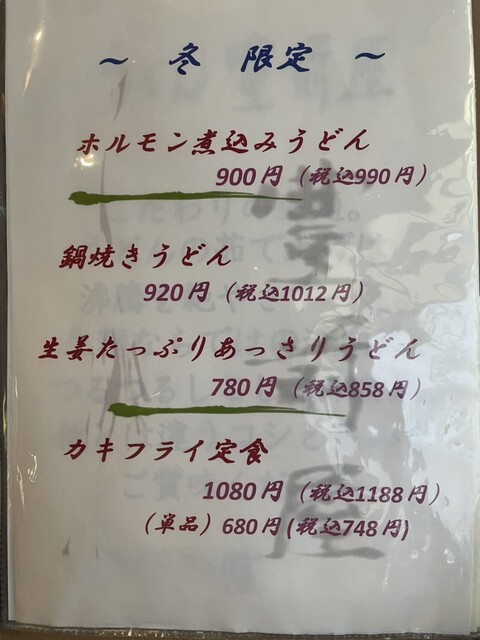 ～ 冬 限定 ～
ホルモン煮込みうどん
900円（税込990円）
鍋焼きうどん
920円（税込1012円）
生姜たっぷりあっさりうどん
780円（税込858円）
カキフライ定食
1080円（税込1188円）
（単品）680円(税込748円)